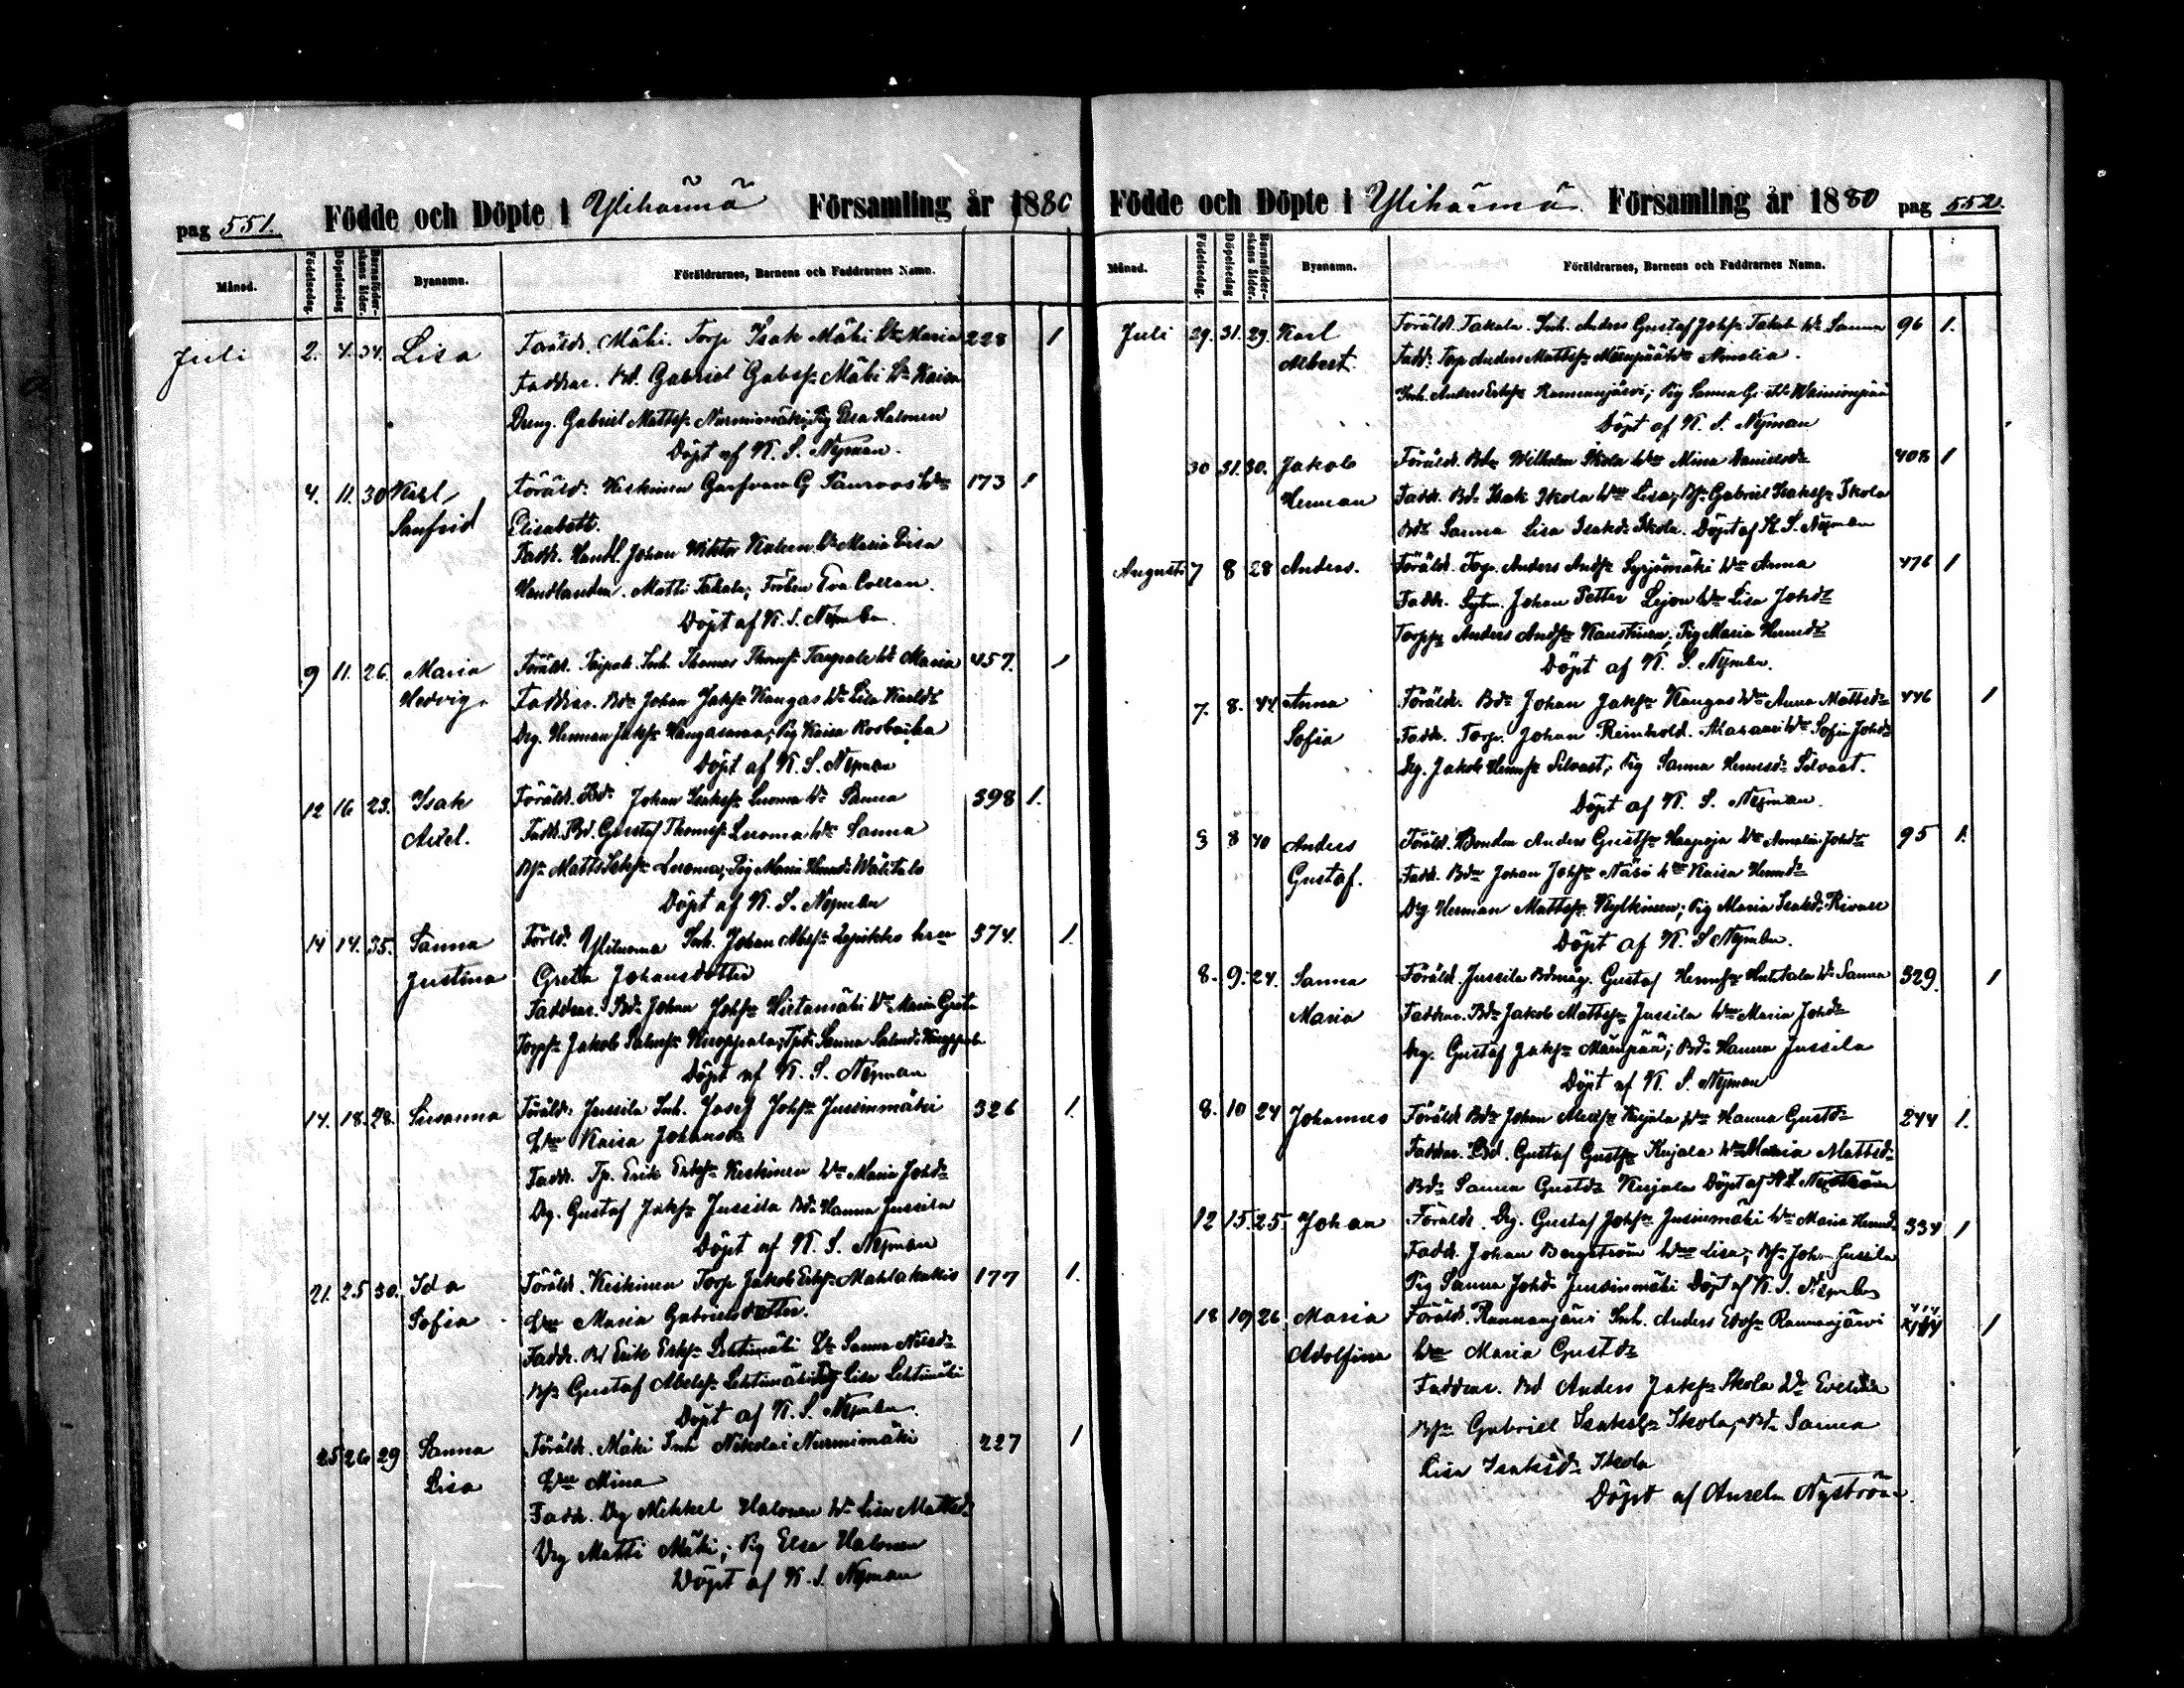 pag 551. Födde och Döpte i Ylihärmä Församling år 1880
Månad. Födelsedag. Döpelsedag Barnaföderskans ålder. Byanamn. Föräldrarnes, Barnens och Faddrarnes Namn.
Juli 2. 4. 34. Lisa Föräldr. Mäki. Torp Isak Mäki Hu Maria 228 1
Faddrar. Bd. Gabriel Gabrs. Mäki Hu Kaisa
Dreng. Gabriel Mattss. Nurmimäki; Pig Elsa Halonen
Döpt af K. S. Nyman.
4. 11. 30 Karl Föräld: Keskinen Garfvare G Hu 173 1
Sanfrid Elisabett.
Fadd. Handl. Johan Viktor Hu Maria Lisa
Handlanden. Matti Takala; Fröken Eva Collan.
Döpt af K. S. Nyman.
9 11. 26. Maria Föräldr. Inh. Thomas Thoms. Hu Maria 457. 1
Hedvig. Faddrar. Bd. Johan Jaks. Kangas Hu Lisa Karlsd.
Drg. Herman Jaks. Kangasmaa; Pig Kaisa
Döpt af K. S. Nyman
12 16 23. Isak Föräld. Bd. Johan Isaks. Luoma Hu Sanna 398 1.
Axel. Fadd. Bd. Gustaf Thoms. Luoma Hu Sanna
Bs. Matts Luoma; Pig Maria Välitalo
Döpt af K. S. Nyman
14 14. 35. Sanna Förld. Yliluoma Inh. Johan Abrs. hustru 374. 1.
Justina Greta Johansdotter
Faddrar. Bd. Johan Johs. Hietamäki Hu Maria Greta
Torps. Jakob Salms. Kuoppala; Sanna Kuoppala
Döpt af K. S. Nyman
14. 18. 28. Susanna Föräld: Jussila Inh. Josef Johs. Jussinmäki 326 1.
Hu Kaisa Johansd.
Fadd. Tp. Erik Eriks. Keskinen Hu Maria Johd.
Drg. Gustaf Jaks. Jussila Bd. Hanna Jussila
Döpt af K. S. Nyman
21. 25 30. Ida Föräldr. Keskinen Torp Jakob Eriks. Mahlakukko 177 1.
Sofia Hu Maria Gabrielsdotter.
Faddr. Bd Erik Eriks. Lehtimäki Hu Sanna
Bs. Gustaf Lehtimäki; Pig Lisa Lehtimäki
Döpt af K. S. Nyman.
25 26 29 Sanna Föräldr. Mäki Inh Nikolai Nurmimäki 227 1
Lisa Hu Mina
Fadd. Drg Mikkel Halonen Hu Lisa Mattsd.
Drg Matti Mäki; Pig Elsa Halonen
Döpt af K. S. Nyman
Födde och Döpte i Ylihärmä Församling år 1880 pag 552.
Månad. Födelsedag. Döpelsedag Barnaföderskans ålder. Byanamn. Föräldrarnes, Barnens och Faddrarnes Namn.
Juli 29. 31. 29. Karl Föräldr. Takala. Inh. Anders Gustaf Johs. Takala Hu Sanna 96 1.
Albert. Fadd. Torp Anders Mattss. Mäenpää Hu Amalia.
Inh. Anders Eriks. Rannanjärvi; Pig Sanna Wainionpää
Döpt af K. S. Nyman
30 31. 30. Jakob Föräldr. Bd. Wilhelm Skola Hu Mina Danielsd. 408 1
Herman Fadd. Bd. Isak Ikola Hu Lisa; Bs. Gabriel Isaks. Ikola
Bd. Sanna Lisa Isaksd. Ikola. Döpt af K. S. Nyman
Augusti 7 8 28 Anders. Föräldr. Torp. Anders Ands. Syrjämäki Hu Anna 476 1
Fadd. Sytn. Johan Petter Lejon Hu Lisa Johsd.
Torps. Anders Ands. Kaustinen; Pig Maria Hermsd.
Döpt af K. S. Nyman.
7. 8. 44 Anna Föräldr. Bd. Johan Jaks. Kangas Hu Anna Mattsd. 446 1
Sofia Fadd. Torp. Johan Reinhold. Hu Sofia Johsd.
Drg. Jakob Herms. Silvast; Pig Sanna Hermsd. Silvast.
Döpt af K. S. Nyman.
3 8 40 Anders Föräld. Bonden Anders Gusts. Haapoja Hu Amalia Johsd. 95 1.
Gustaf. Fadd. Bd. Johan Johs. Näsi Hu Kaisa Hermsd.
Drg Herman Mattss. Kylkinen; Pig Maria Isaksd.
Döpt af K. S Nyman.
8. 9. 24. Sanna Föräldr. Jussila Bdmåg. Gustaf Herms. Huhtala Hu Sanna 329. 1
Maria Faddrar. Bd. Jakob Mattss. Jussila Hu Maria Johd.
Drg. Gustaf Jaks. Mäenpää; Bd. Hanna Jussila
Döpt af K. S. Nyman
8. 10 24 Johannes Föräldr Bd. Johan Kujala Hu Hanna Gustsd. 244 1.
Faddrar. Bd. Gustaf Gusts. Kujala Hu Maria Mattsd.
Bd. Sanna Gustsd. Kujala Döpt af Nyström
12 15 25 Johan Föräldr. Drg. Gustaf Johs. Jussinmäki Hu Maria Hermsd. 334 1
Fadd. Johan Bergström Hu Lisa; Bs. Joh. Jussila
Pig Sanna Johd. Jussinmäki Döpt af K. S. Nyman
18 19 26 Maria Föräldr. Rannanjärvi Inh. Anders Rannanjärvi 1
Adolfina Hu Maria Gustsd.
Faddrar. Bd Anders Jaks. Skola Hu Evelina
Bs. Gabriel Isaks. Ikola; Bd. Sanna
Lisa Isaksd. Ikola
Döpt af Anselm Nyström.